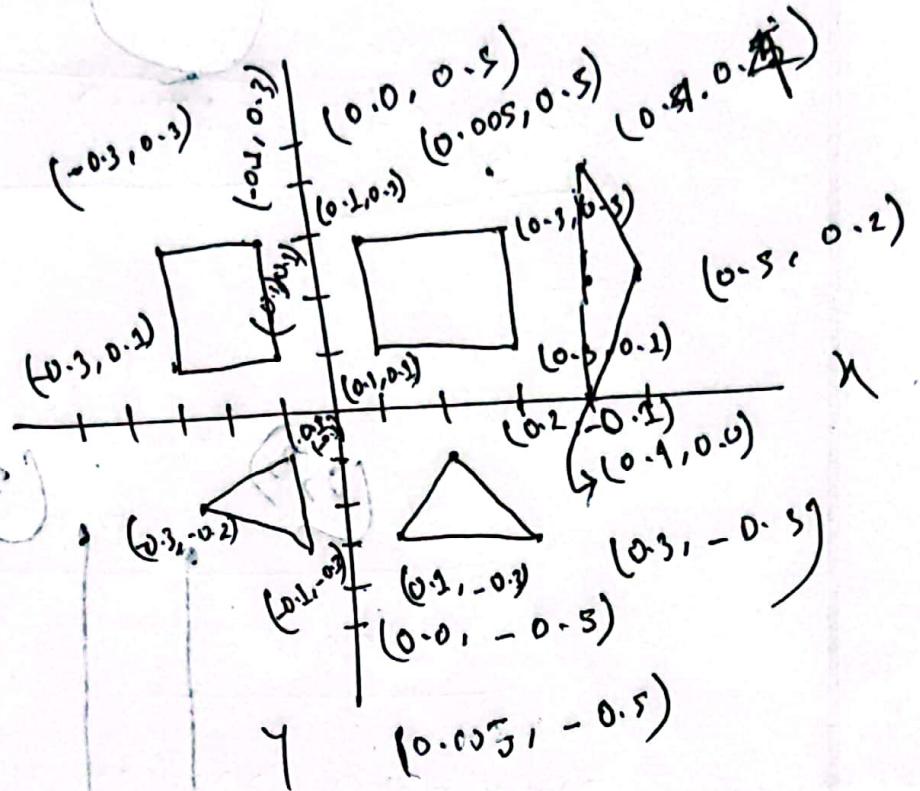 (0.0, 0.5)
(0.005, 0.5)
(-0.3, 0.3)
(-0.1, 0.3)
(0.1, 0.3)
(0.3, 0.3)
(0.5, 0.2)
(-0.3, 0.1)
(0.1, 0.1)
(0.3, 0.1)
x
(0.2, -0.1)
(0.4, 0.0)
(-0.3, -0.2)
(-0.1, -0.3)
(0.1, -0.3)
(0.3, -0.3)
(0.0, -0.5)
y
(0.005, -0.5)